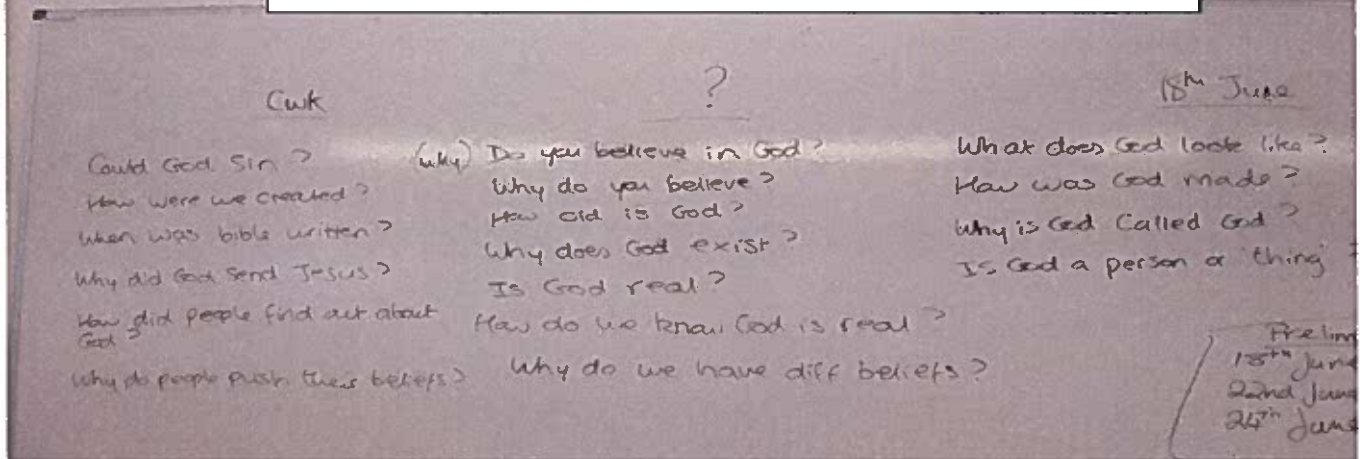 Cwk
?
18th June
Could God Sin?
How were we created?
When was bible written?
Why did God send Jesus?
How did people find out about
God?
Why do people push their beliefs?
(why) Do you believe in God?
Why do you believe?
How old is God?
Why does God exist?
Is God real?
How do we know God is real?
Why do we have diff beliefs?
What does God look like?
How was God made?
Why is God Called God?
Is God a person or 'thing'
Prelim
18th June
22nd June
24th June